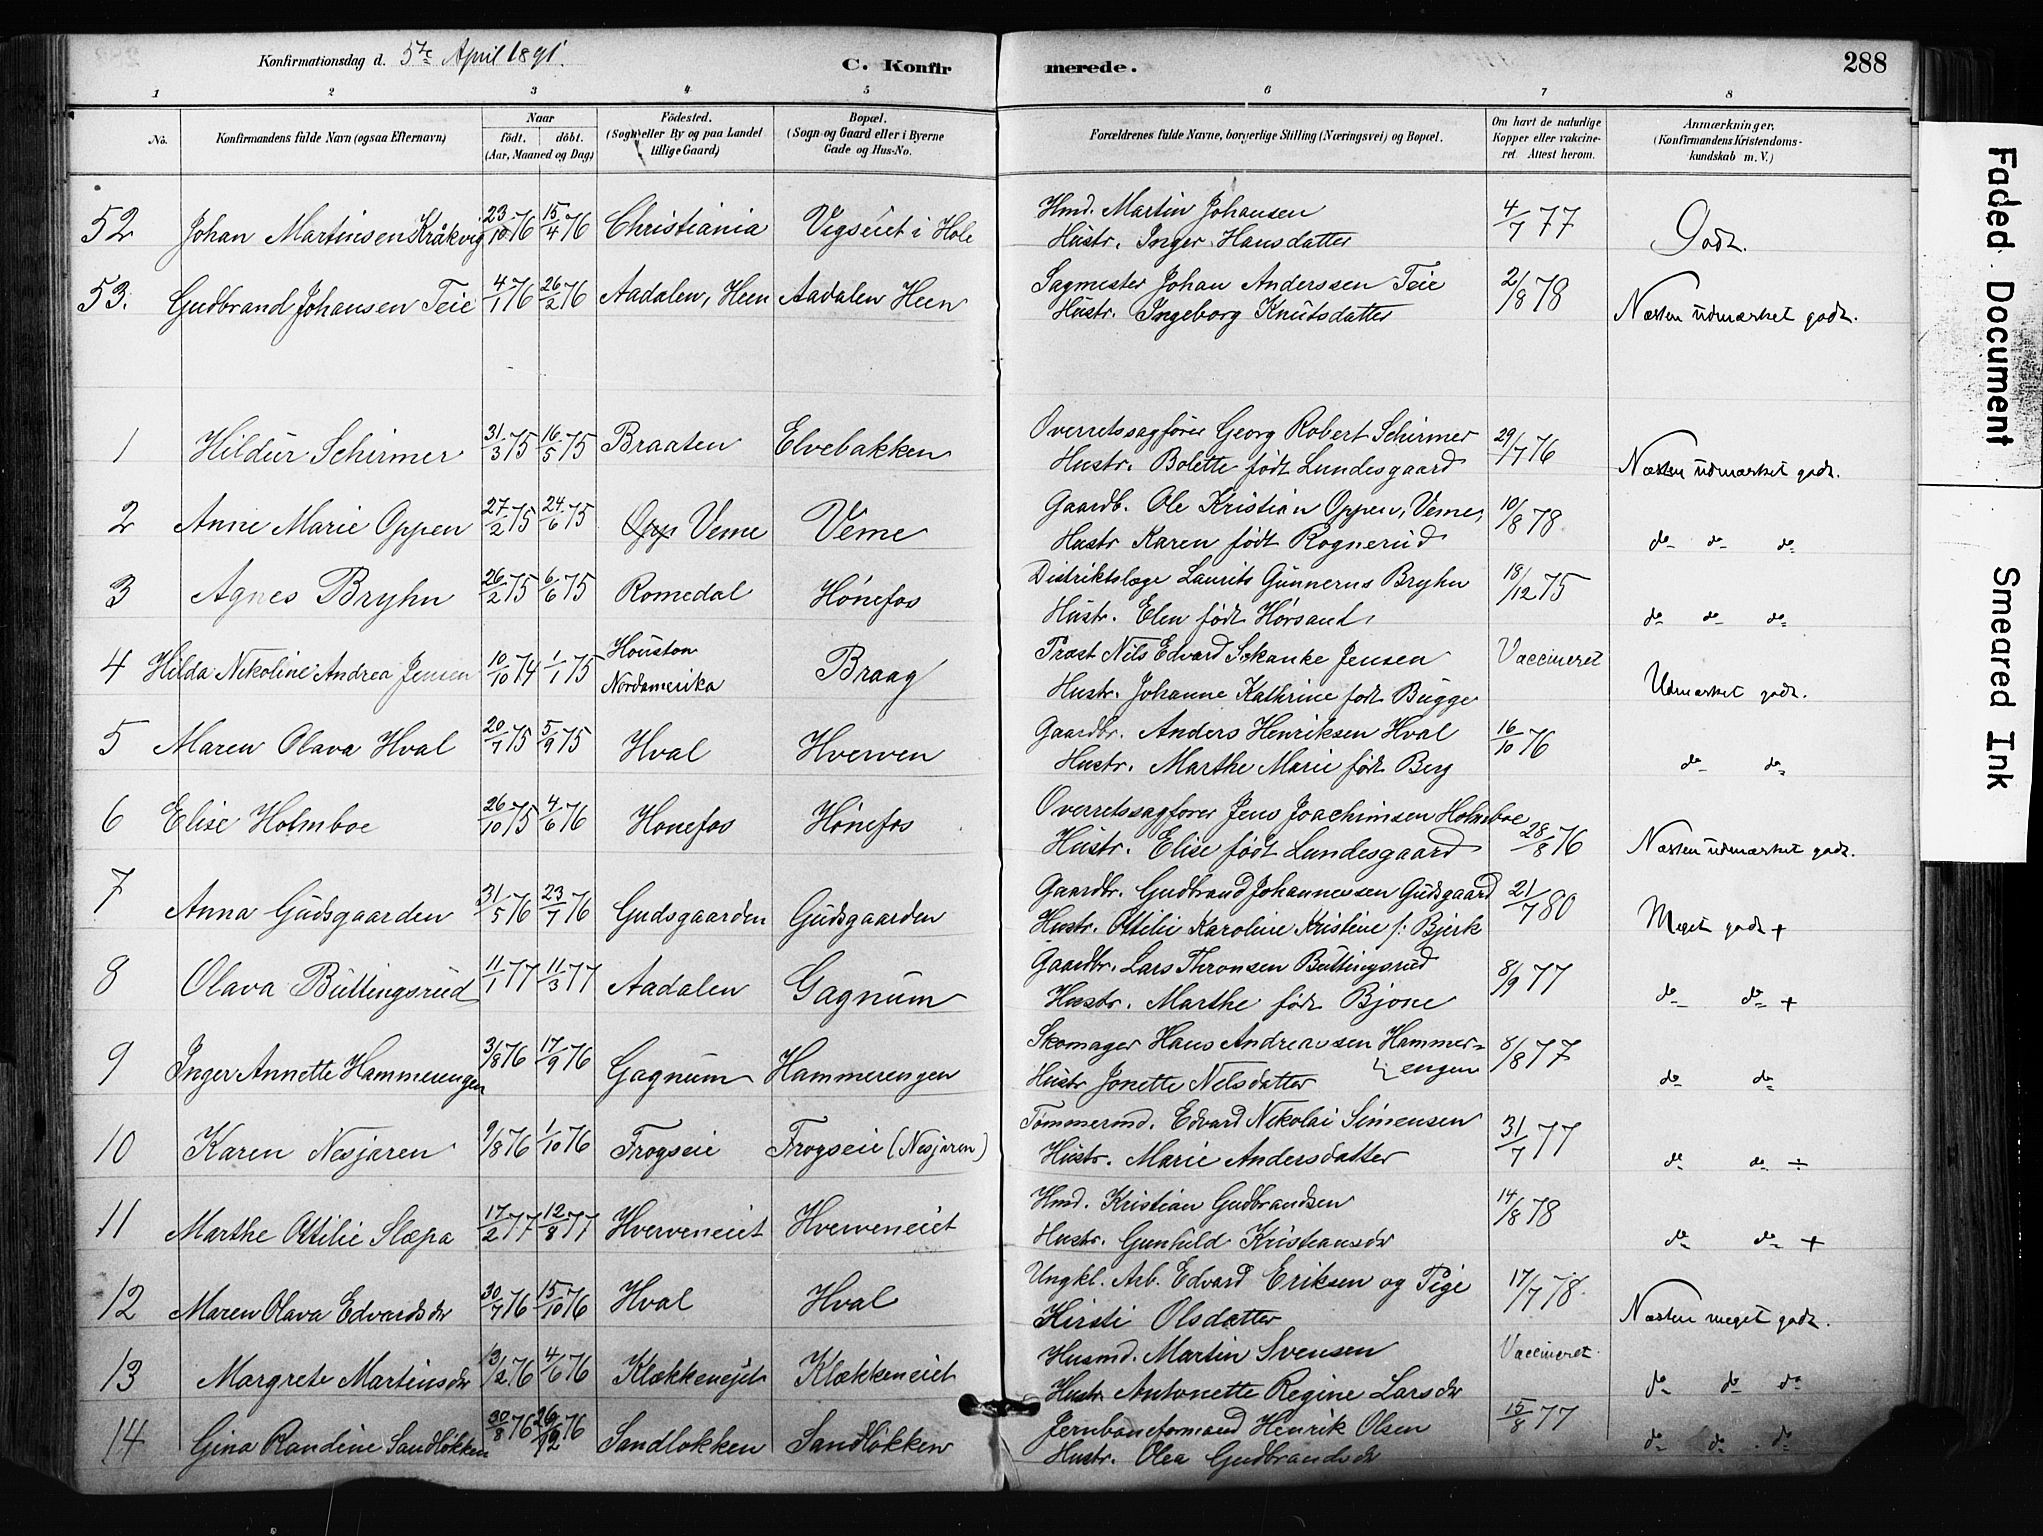 Konfirmationsdag d. 5te April 1891.
C. Konfirmerede.
288
1 2 3 4 5 6 7 8
No. Konfirmandens fulde Navn (ogsaa Efternavn) Naar født. døbt. (Aar, Maaned og Dag) Födested. (Sogn eller By og paa Landet tillige Gaard) Bopæl. (Sogn og Gaard eller i Byerne Gade og Hus-No. Forældrenes fulde Navne, borgerlige Stilling (Næringsvei) og Bopæl. Om havt de naturlige Kopper eller vakcineret Attest herom. Anmærkninger. (Konfirmandens Kristendomskundskab m. V.)
52 Johan Martinsen Kråkvig 23/10 76 15/4 76 Christiania Vigseiet i Hole Hmd. Martin Johansen 4/7 77 Godt.
Hustr. Inger Hansdatter
53. Gudbrand Johansen Teie 4/1 76 26/2 76 Aadalen, Heen Aadalen Heen Sagmester Johan Anderssen Teie 2/8 78 Næsten udmærket godt.
Hustr. Ingeborg Knutsdatter
1 Hildur Schirmer 31/3 75 16/5 75 Braaten Elvebakken Overretssagfører Georg Robert Schirmer 29/7 76 Næsten udmærket godt.
Hustr. Bolette født Lundesgaard
2 Anne Marie Oppen 27/2 75 24/6 75 Veme Veme Gaardb. Ole Kristian Oppen, Veme, 10/8 78 do do do
Hustr Karen født Rognerud
3 Agnes Bryhn 26/2 75 6/6 75 Romedal Hønefos Distriktslæge Laurits Gunnerus Bryhn 18/12 75 do do do
Hustr. Elen født Hørsand
4 Hilda Nikoline Andrea Jensen 10/10 74 1/1 75 Houston Nordamerika Braag Prost Nils Edvard Schanke Jensen Vaccineret Udmærket godt.
Hustr. Johanne Kathrine født Bugge
5 Maren Olava Hval 20/7 75 5/9 75 Hval Hverven Gaardbr. Anders Henriksen Hval 16/10 76 do do
Hustr. Marthe Marie født Berg
6 Elise Holmboe 26/10 75 4/6 76 Honefos Hønefos Overretssagfører Jens Joachimsen Holmboe 28/8 76 Næsten udmærket godt.
Hustr. Elise født Lundesgaard
7 Anna Gudsgaarden 31/5 76 23/7 76 Gudsgaarden Gudsgaarden Gaardbr. Gudbrand Johannessen Gudsgaard 21/7 80 Meget godt +
Hustr. Ottilie Karoline Kristine f: Bjerk
8 Olava Buttingsrud 11/1 77 11/3 77 Aadalen Gagnum Gaardbr. Lars Thronsen Buttingsrud 8/9 77 do do +
Hustr. Marthe født Bjone
9 Inger Annette Hammerengen 3/8 76 17/9 76 Gagnum Hammerengen Skomager Hans Andreassen Hammer= 8/8 77 do do
engen
Hustr Jonette Nelsdatter
10 Karen Nesjaren 9/8 76 1/10 76 Frogseie Frogseie (Nesjaren) Tømmermd. Edvard Nikolai Simensen 31/7 77 do do ÷
Hustr. Marie Andersdatter
11 Marthe Ottilie Slæpa 17/2 77 12/8 77 Hverveneiet Hverveneiet Hmd. Kristian Gudbrandsen 14/8 78 do do +
Hustr. Gunhild Kristiansdr
12 Maren Olava Edvardsdr 30/7 76 15/10 76 Hval Hval Ungkl. Arb. Edvard Eriksen og Pige 17/7 78. Næsten meget godt.
Kirsti Olsdatter
13 Margrete Martinsdr 13/2 76 4/6 76 Klækkeneiet Klækkeneiet Husmd. Martin Svensen Vaccineret do do do
Hustr Antonette Regine Larsdr
14 Gina Randine Sandløkken 30/8 76 26/12 76 Sandløkken Sandløkken Jernbaneformand Henrik Olsen 15/8 77 do do do
Hustr. Olea Gudbrandsdr
Faded Document
Smeared Ink